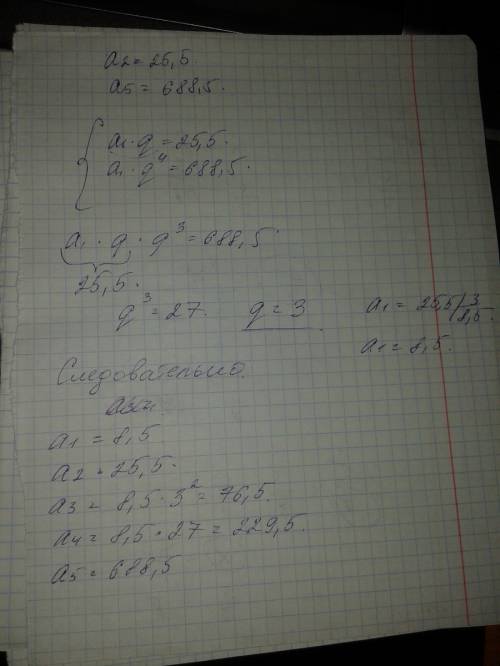 a₂ = 25,5.
a₅ = 688,5.
a₁ · q = 25,5.
a₁ · q⁴ = 688,5.
a₁ · q · q³ = 688,5.
25,5.
q³ = 27. q = 3
a₁ = 25,5 | 3
8,5.
a₁ = 8,5.
Следовательно.
a₁ = 8,5
a₂ = 25,5.
a₃ = 8,5 · 3² = 76,5.
a₄ = 8,5 · 27 = 229,5.
a₅ = 688,5